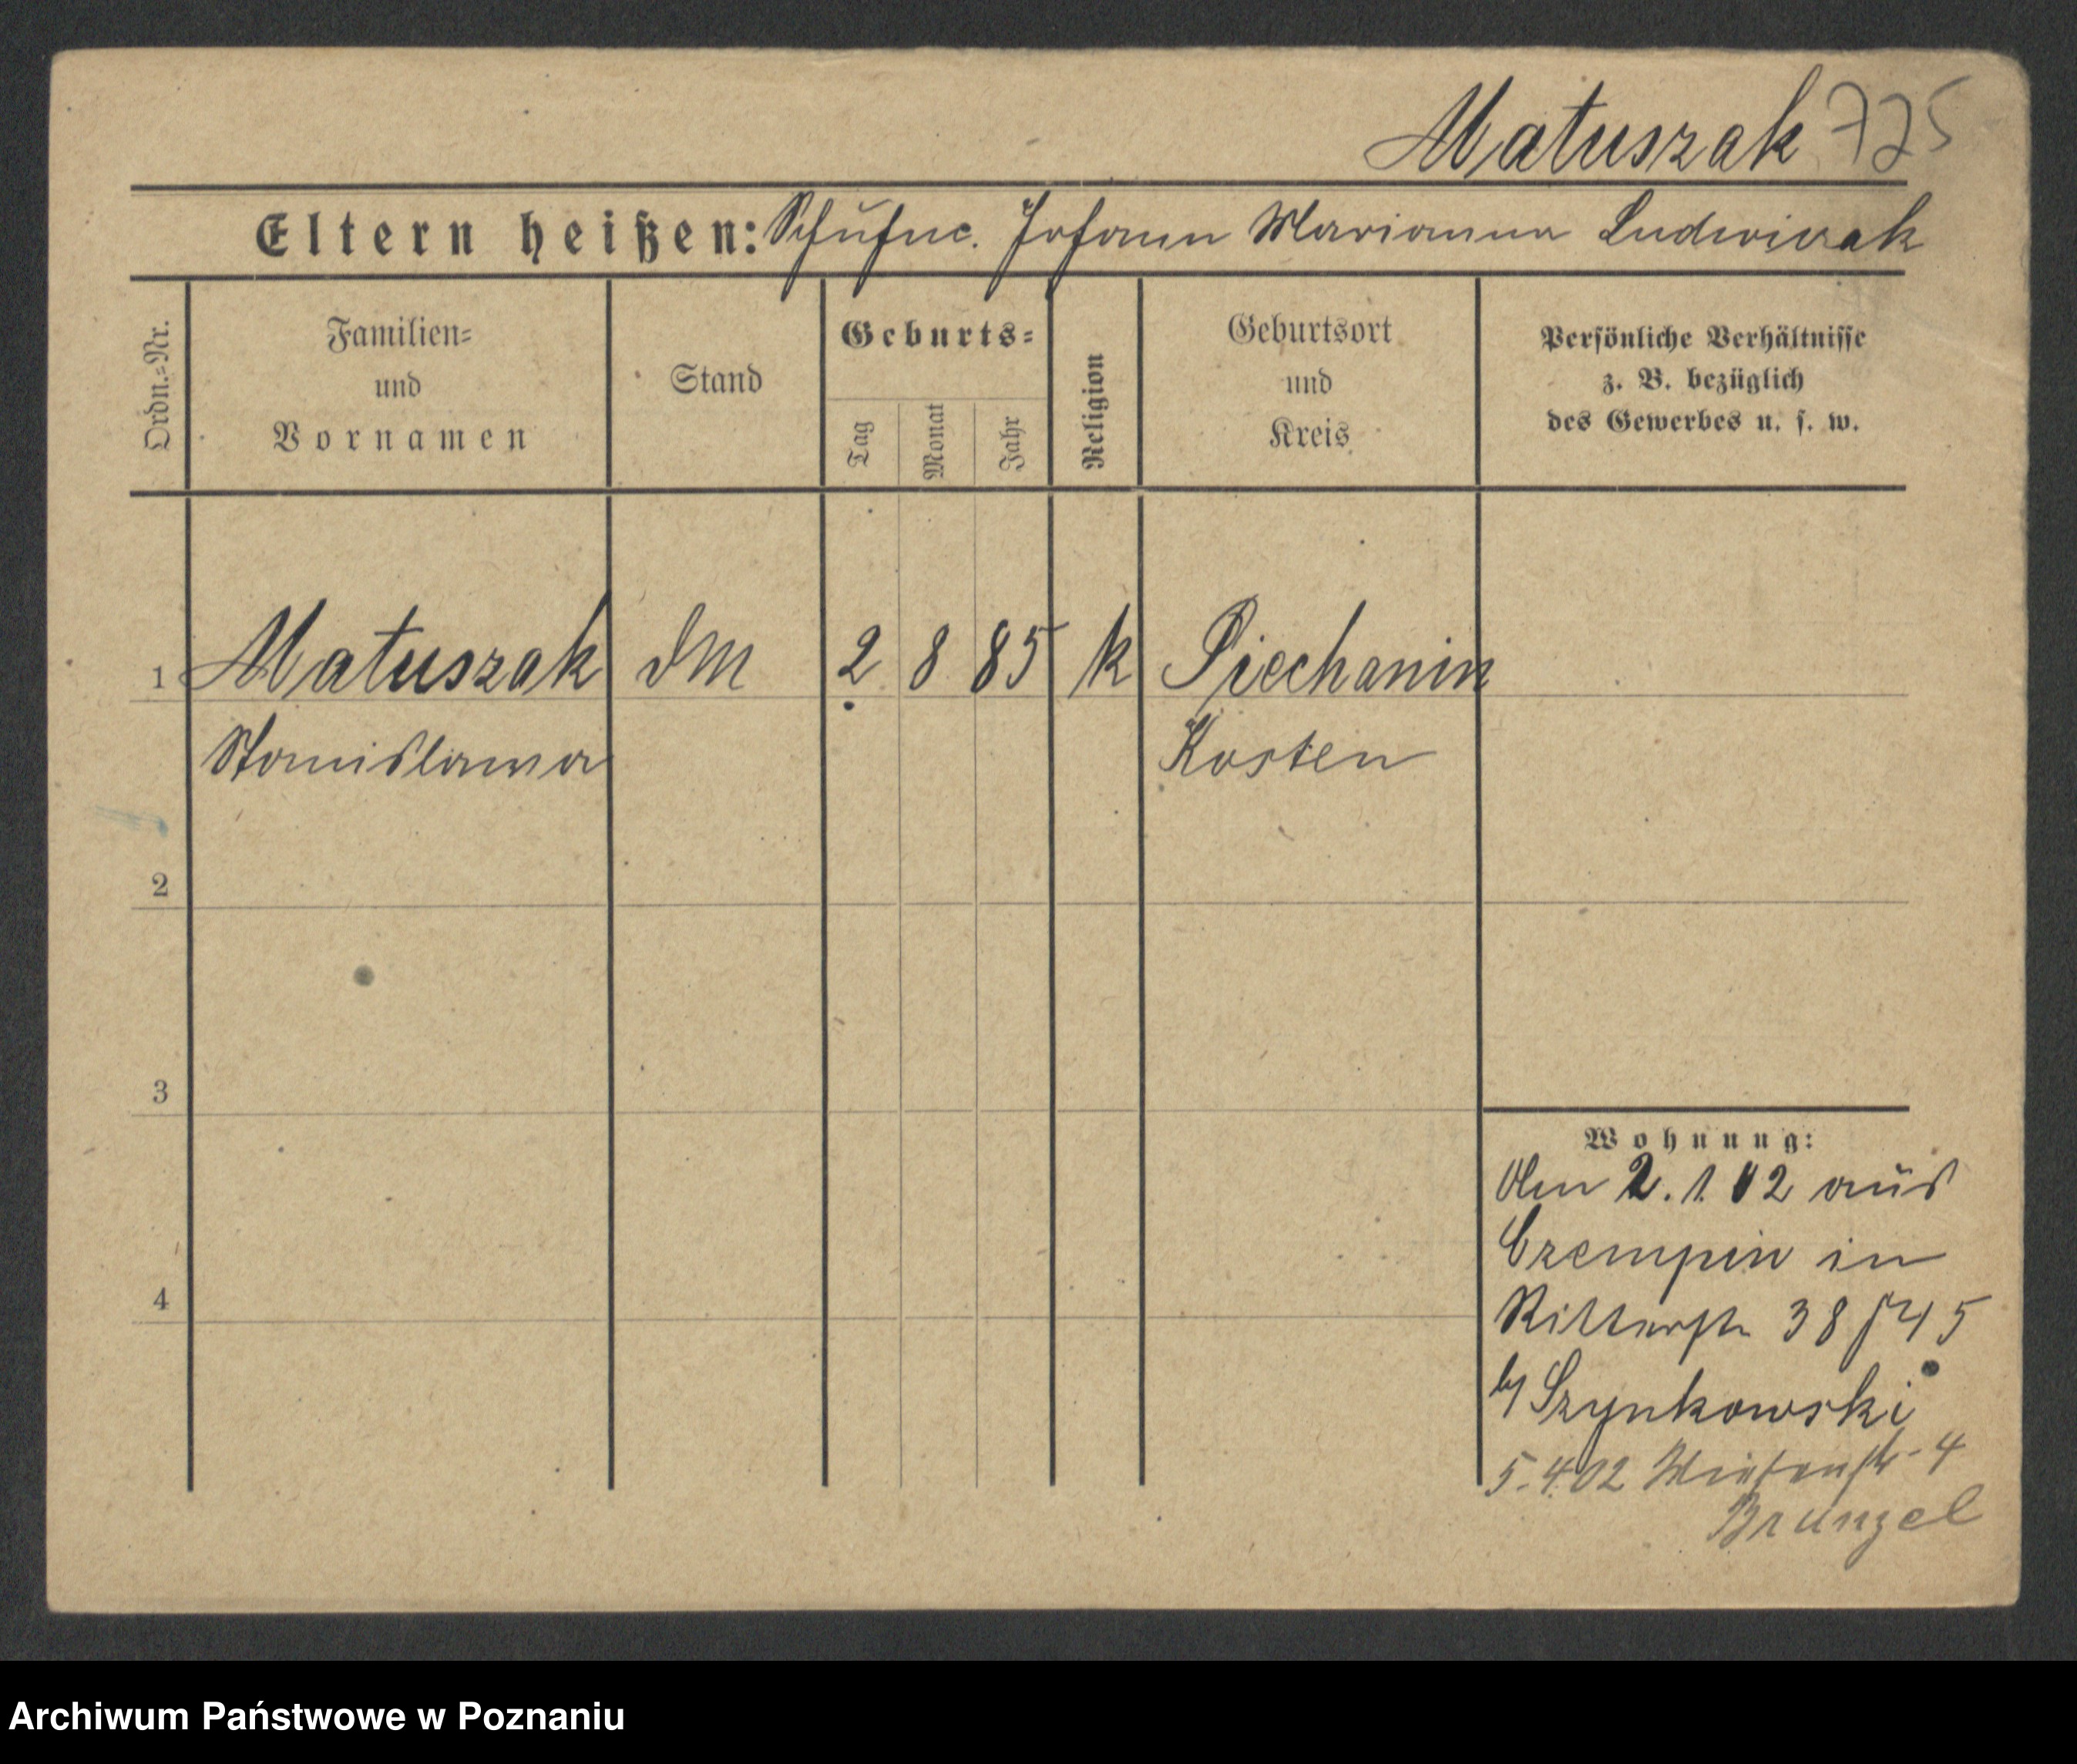 Matuszak 725
Eltern heißen: Schuhm. Johann Marianna Ludwiczak
Ordn.-Nr.
Familien-
und
Vornamen
Stand
Geburts-
Tag
Monat
Jahr
Religion
Geburtsort
und
Kreis
Persönliche Verhältnisse
z. B. bezüglich
des Gewerbes u. s. w.
1 Matuszak DM 2 8 85 k Piechanin
Stanislawa Kosten
2
3
4
Wohnung:
2. 1 02 aus
Czempin in
Ritterstr 38 45
b/ Szynkowski
5.4.02 Wiesenstr 4
Brunzel
Archiwum Państwowe w Poznaniu